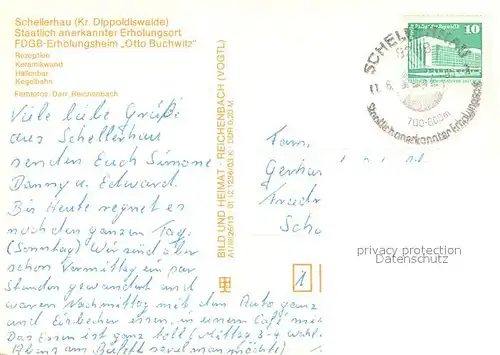 Schellerhau (Kr. Dippoldiswalde)
Staatlich anerkannter Erholungsort
FDGB-Erholungsheim „Otto Buchwitz"
Rezeption
Keramikwand
Hallenbar
Kegelbahn
Fernfotos: Darr, Reichenbach
Viele liebe Grüße
aus Schellerhau
senden Euch Simone
Danny u. Edward.
Bis Heute regnet es
noch den ganzen Tag.
(Sonntag) Wir sind aber
schon Vormittag ein par
Stunden gewandert und
waren Nachmittag mit den Auto ganz
und Eisbecher essen, in einem Café
Das Essen ist ganz toll (Mittag 3-4 Wahl.
Abens am Büfett soviel man möchte)
BILD UND HEIMAT · REICHENBACH (VOGTL)
A1/III/26/15 01 12 1236/03 K · DDR 0,20 M
Fam.
Gerhar
Sch
10
SCHELLERHAU
700-800m
Staatlich anerkannter Erholungsort
1
privacy protection
Datenschutz